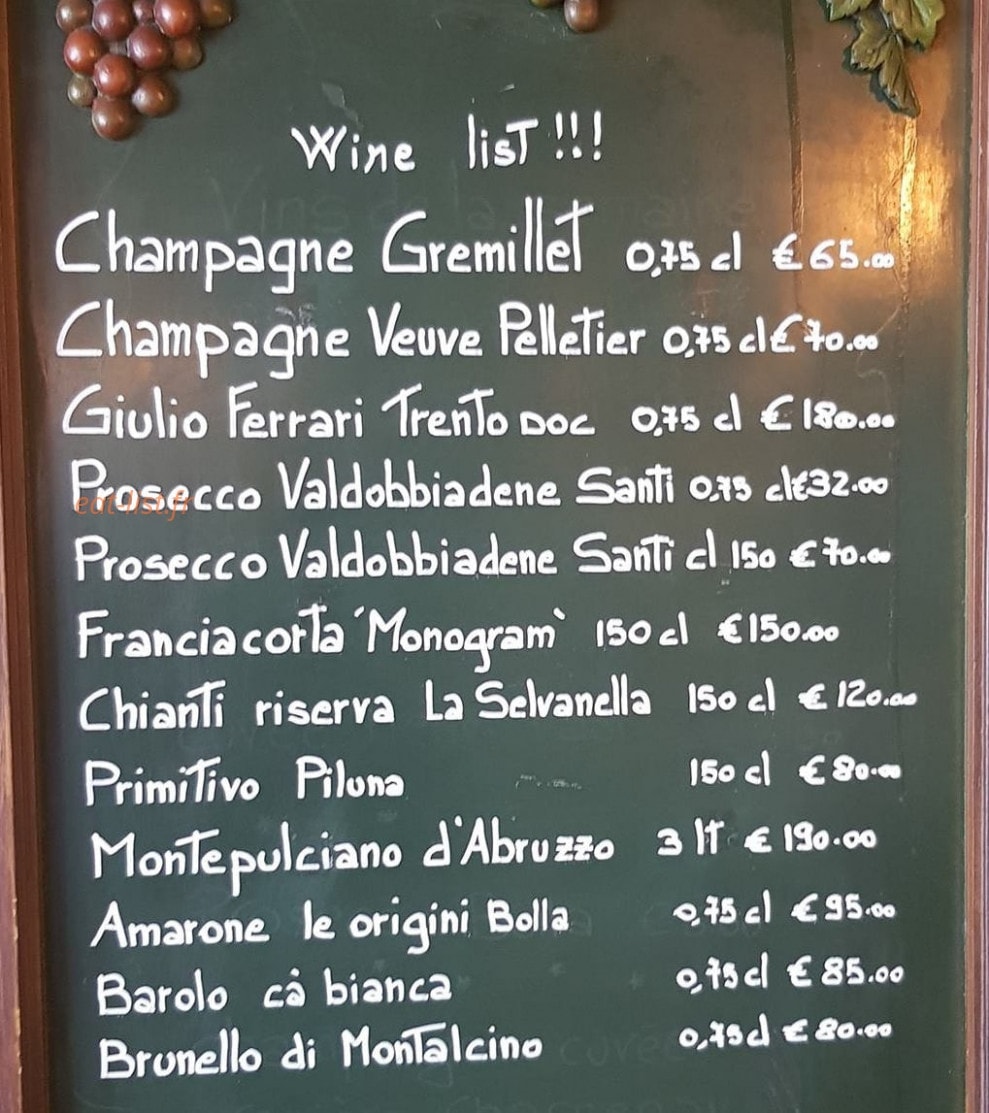 Wine list!!!
Champagne Gremillet 0,75 cl € 65.00
Champagne Veuve Pelletier 0,75 cl € 70.00
Giulio Ferrari Trento DOC 0,75 cl € 180.00
Prosecco Valdobbiadene Santi 0,75 cl € 32.00
eat-list.fr
Prosecco Valdobbiadene Santi cl 150 € 70.00
Franciacorta ´Monogram` 150 cl € 150.00
Chianti riserva La Selvanella 150 cl € 120.00
Primitivo Piluna 150 cl € 80.00
Montepulciano d'Abruzzo 3 lt € 190.00
Amarone le origini Bolla 0,75 cl € 95.00
Barolo câ bianca 0,75 cl € 85.00
Brunello di Montalcino 0,75 cl € 80.00